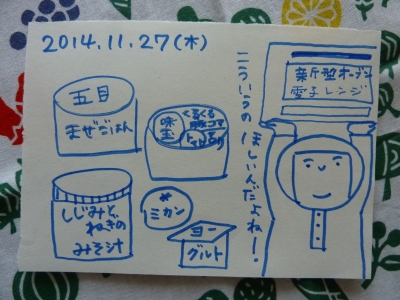 2014.11.27(木)
五目
まぜごはん
味玉
くるくる
しじみと、
ねぎの
みそ汁
ミカン
ヨー
グルト
こういうの ほしいんだよねー!
新型オーブン
電子レンジ